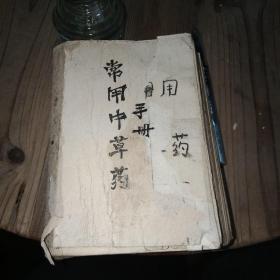 常用中草药
手册
用药